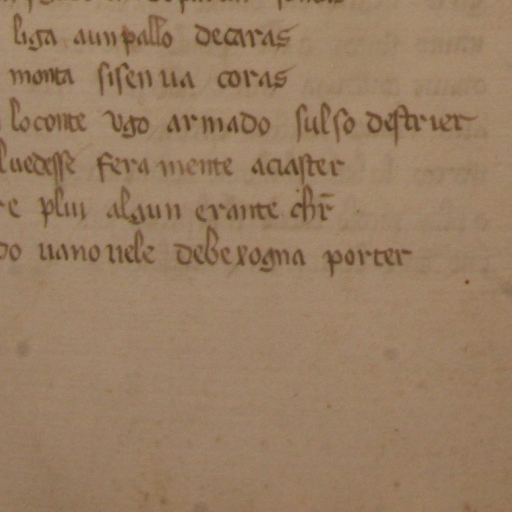 liga aun pallo decaras
monta sisen ua coras
loconte vgo armado sulso destrier
luedesse fera mente aciaster
re plui algun erante chr̄
do uano uele debexogna porter